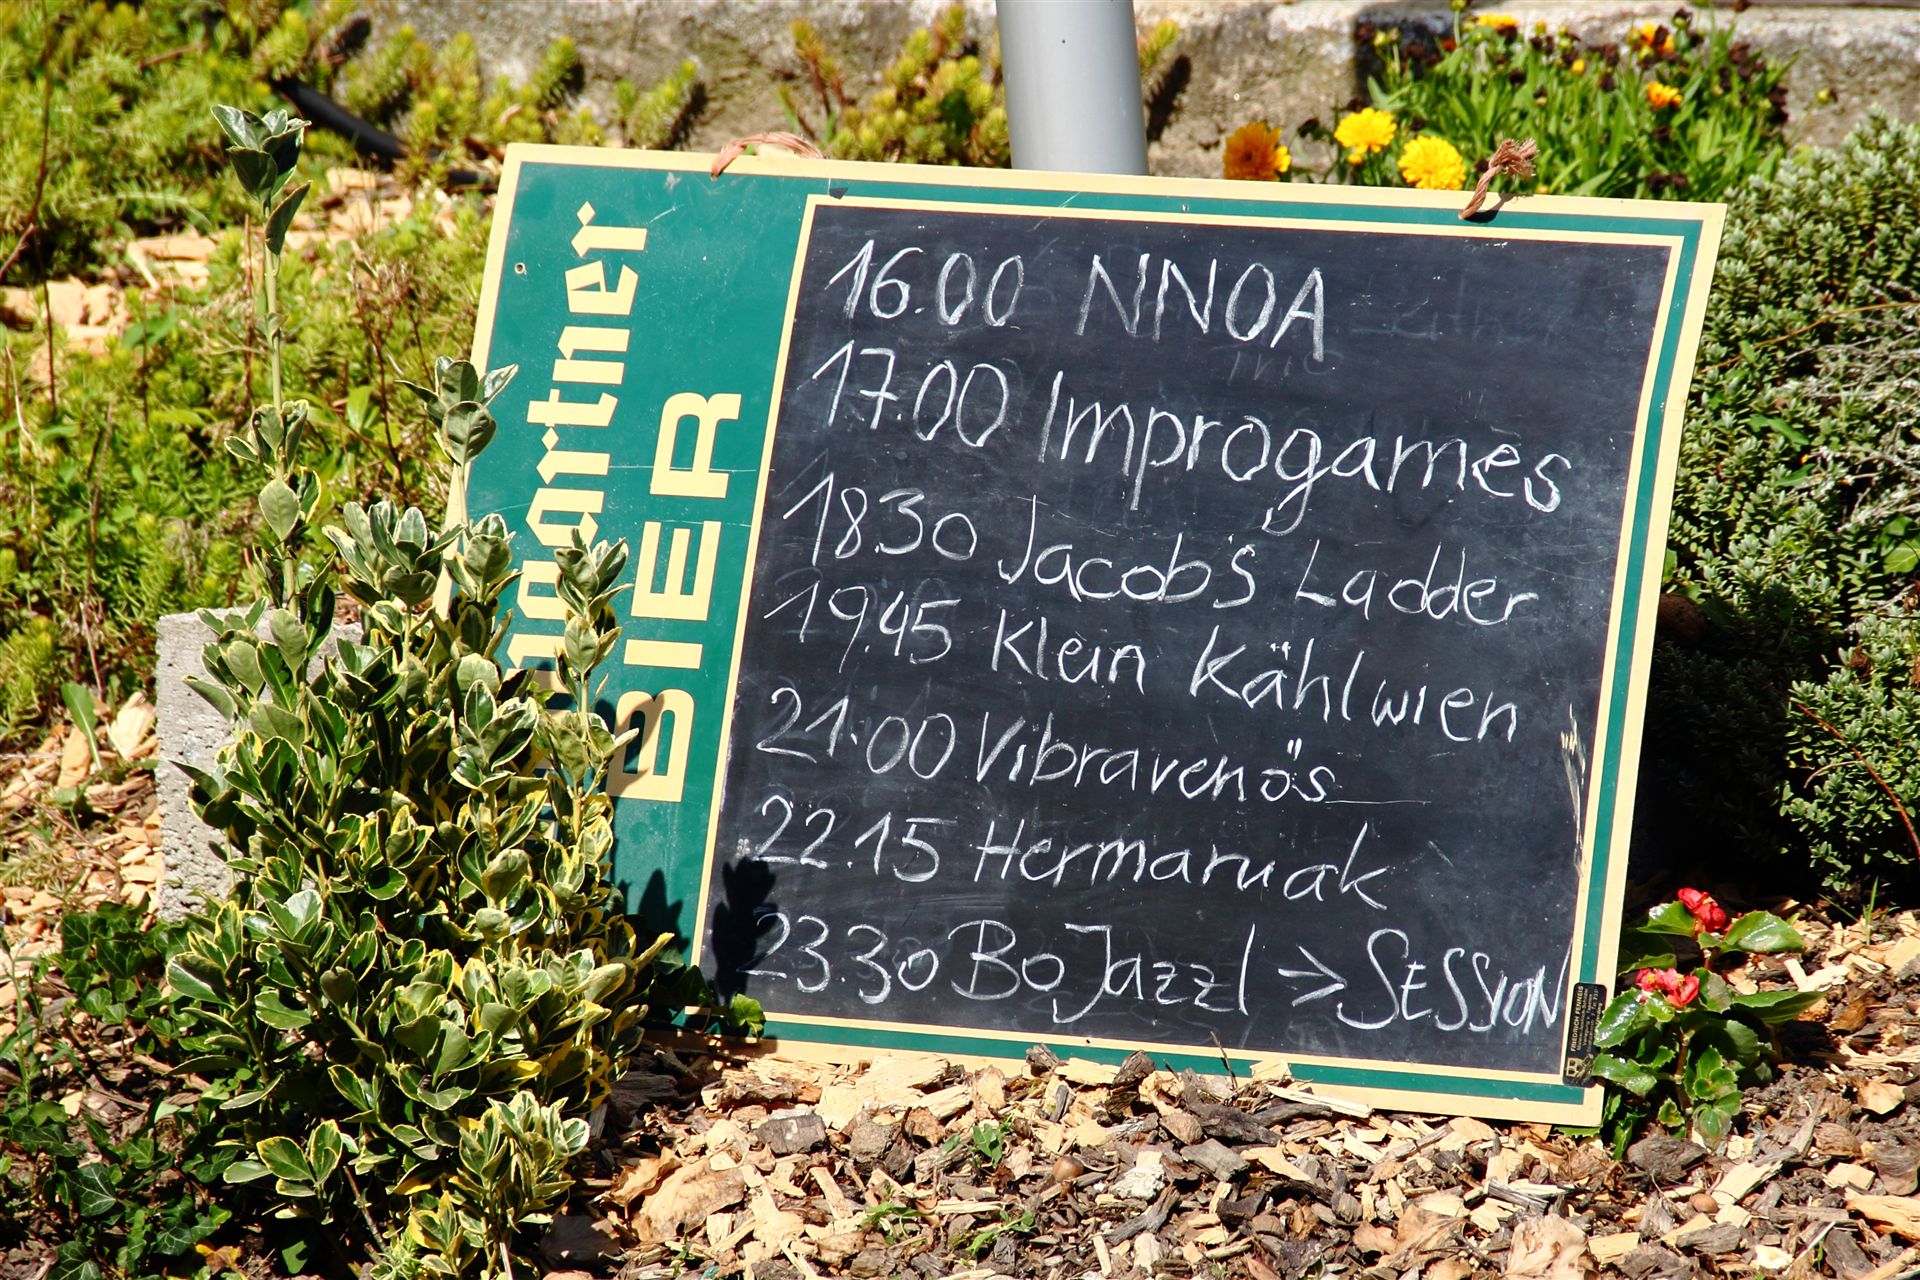 BIER
16.00 NNOA
17.00 Improgames
18.30 Jacob's Ladder
19.45 Klein Kählwien
21.00 Vibravenös
22.15 Hermaruak
23.30 BoJazzl > SESSION
FRIEDRICH FENNESS